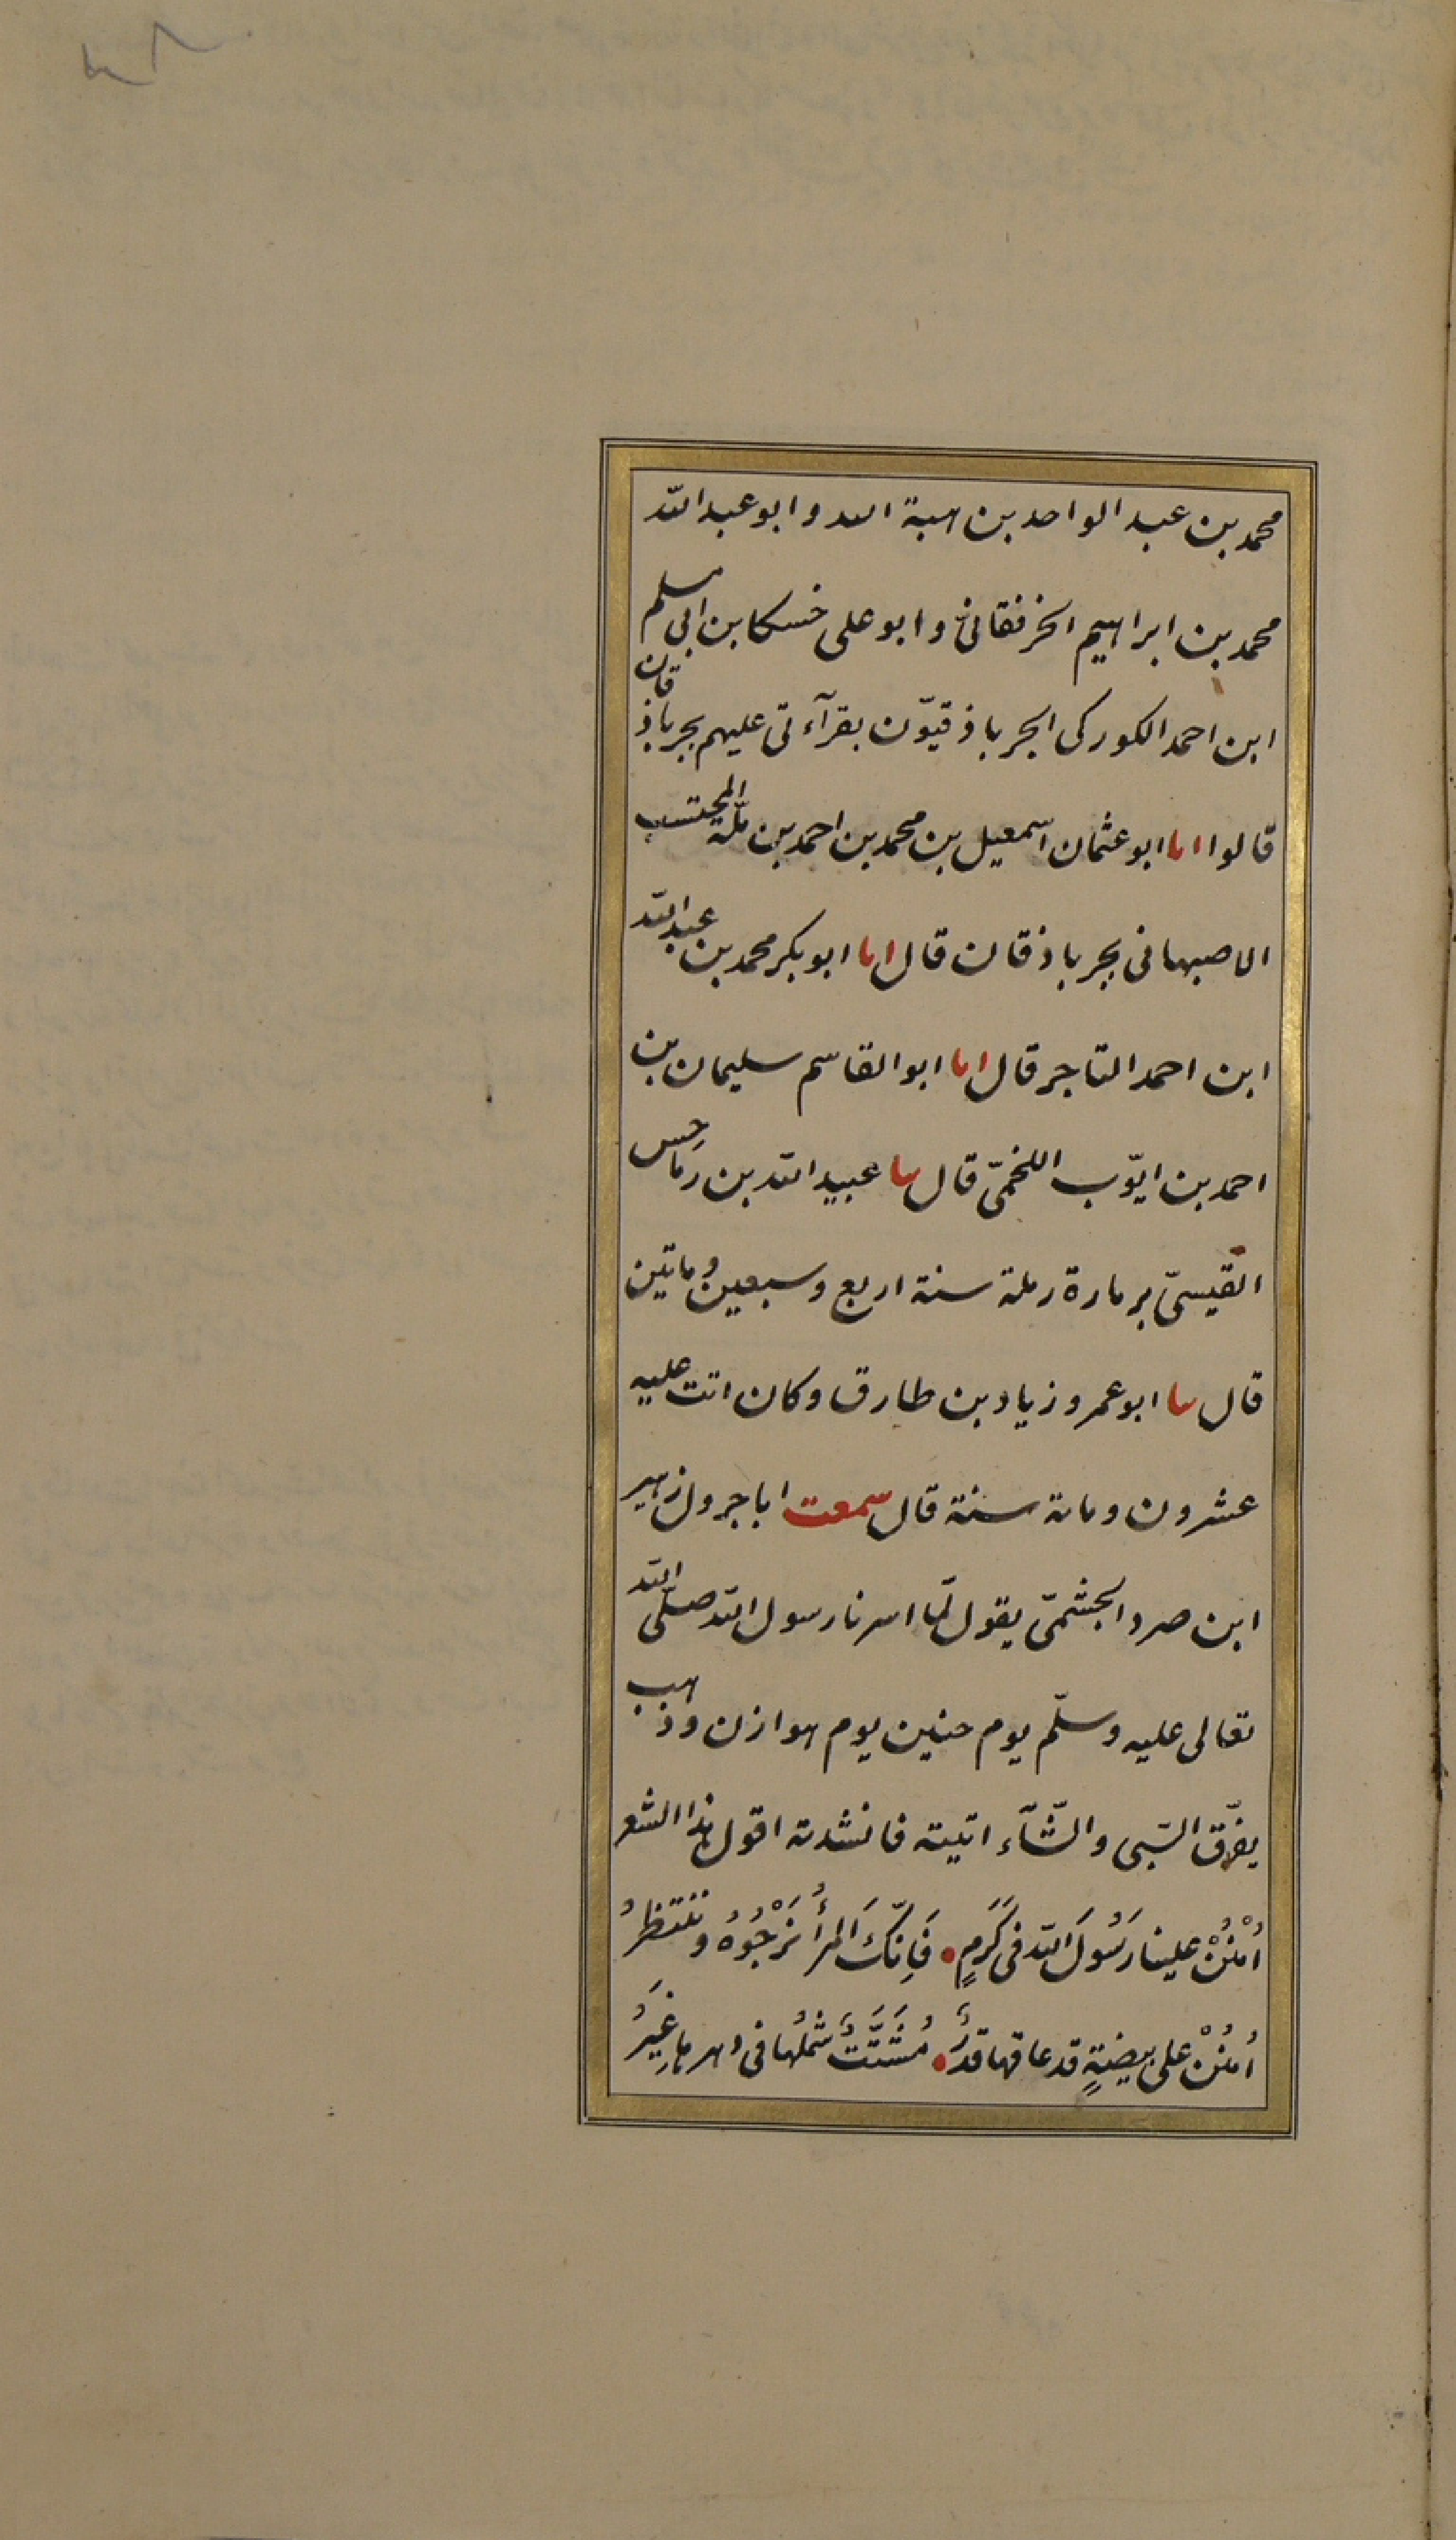 محمد بن عبد الواحد بن هبة الله وابو عبد الله
محمد بن ابراهيم الخرفقانىّ وابو على خسكا بن ابى مسلم
ابن احمد الكوركى الجرباذقيوّن بقرآءتى عليهم بجرباذقان
قالوا انا ابو عثمان اسمعيل بن محمد بن احمد بن ملّة المحتسب
الاصبهانى بجرباذقان قال انا ابو بكر محمد بن عبد الله
ابن احمد التاجر قال انا ابو القاسم سليمان بن
احمد بن ايّوب اللخمىّ قال ثنا عبيد الله بن رماحس
القيسىّ برمادة رملة سنة اربع وسبعين وماتين
قال ثنا ابو عمرو زياد بن طارق وكان اتت عليه
عشرون وماىة سنة قال سمعت ابا جرول زهير
ابن صرد الجشمىّ يقول لمّا اسرنا رسول الله صلّى الله
تعالى عليه وسلّم يوم حنين يوم هوازن وذهب
يفرّق السّبى والشّآء اتيته فانشدته اقول هذا الشعر
اُمْنُنْ علينا رَسُولَ الله فى كَرَمٍ ۰ فَاِنّكَ المَرأُ نَرْجُوْهُ وننتظرُ
اُمنُنْ على بيضةٍ قد عاقها قدرٌ ۰ مُشَتَّتٌ شملُها فى دهرها غِيَرُ